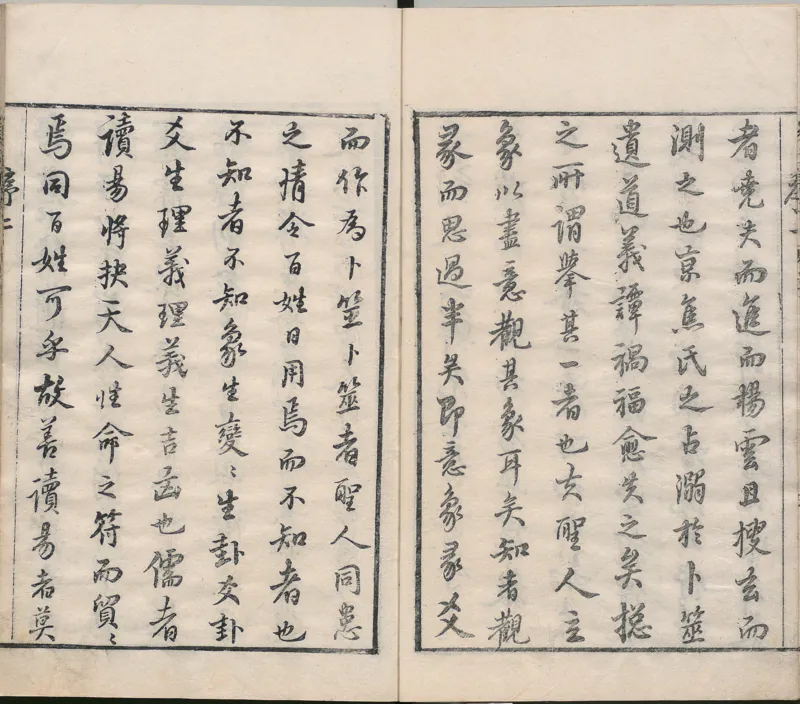 者堯夫而進而楊雲且搜玄而
測之也京焦氏之占溺於卜筮
遺道義譚禍福愈失之矣揔
之所謂擧其一者也夫聖人立
象以盡意觀其象耳矣知者觀
彖而思過半矣即意象彖爻
而作為卜筮卜筮者聖人同患
之情令百姓日用焉而不知者也
不知者不知象生變〻生卦爻卦
爻生理義理義生吉凶也儒者
讀易將抉天人性命之符而貿〻
焉同百姓可乎故善讀易者莫
序二